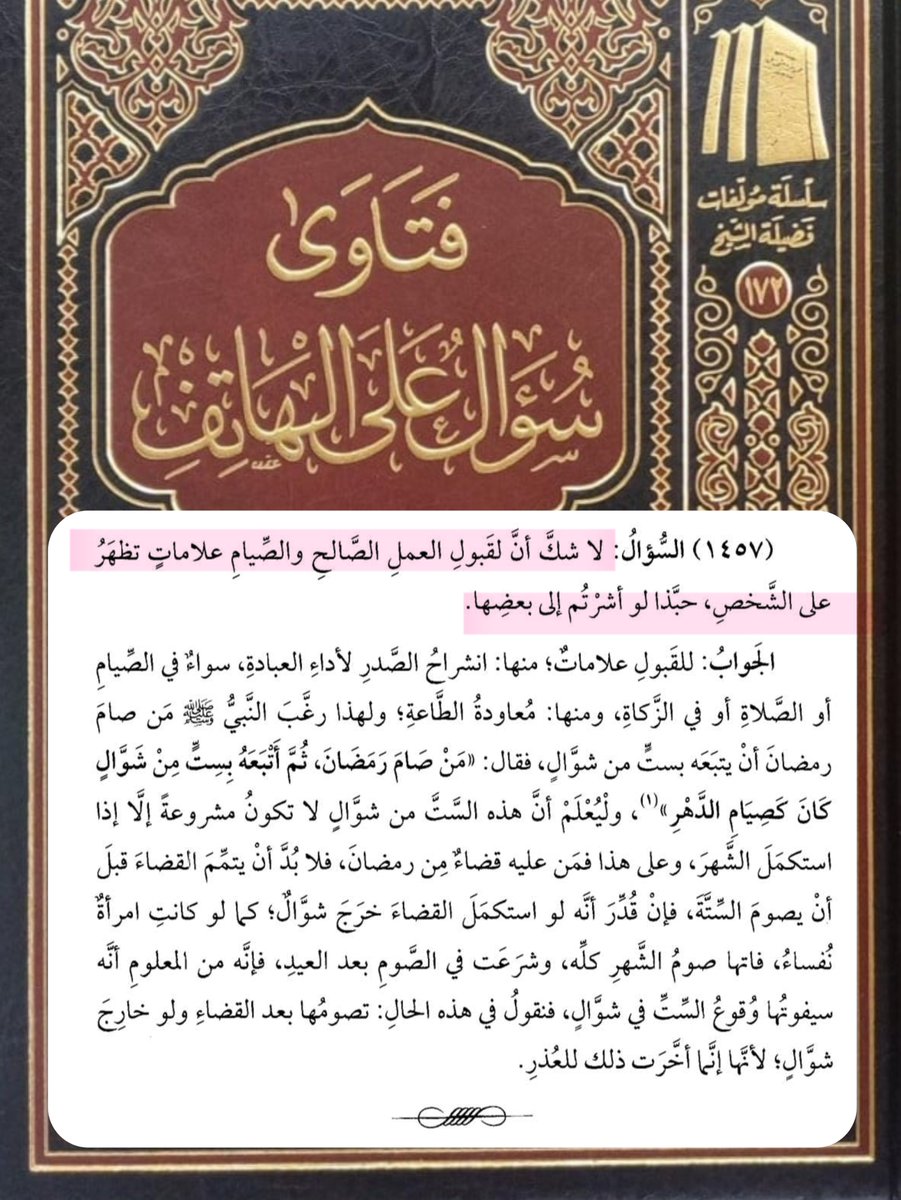 سلسلة مؤلفات
فضيلة الشيخ
١٧٢
فَتَاوَىٰ
سُؤَال عَلَى الهَاتِفِ
(١٤٥٧) السُّؤالُ: لا شكَّ أنَّ لقَبولِ العملِ الصَّالحِ والصِّيامِ علاماتٍ تظهَرُ
على الشَّخصِ، حبَّذا لو أشرْتُم إلى بعضِها.
الجَوابُ: للقَبولِ علاماتٌ؛ منها: انشراحُ الصَّدرِ لأداءِ العبادةِ، سواءٌ في الصِّيامِ
أو الصَّلاةِ أو في الزَّكاةِ، ومنها: مُعاودةُ الطَّاعةِ؛ ولهذا رغَّبَ النَّبيُّ ﷺ مَن صامَ
رمضانَ أنْ يتبَعَه بستٍّ من شوَّالٍ، فقال: «مَنْ صَامَ رَمَضَانَ، ثُمَّ أَتْبَعَهُ بِسِتٍّ مِنْ شَوَّالٍ
كَانَ كَصِيَامِ الدَّهْرِ»(١)، ولْيُعْلَمْ أنَّ هذه السَّتَّ من شوَّالٍ لا تكونُ مشروعةً إلَّا إذا
استكمَلَ الشَّهرَ، وعلى هذا فمَن عليه قضاءٌ مِن رمضانَ، فلا بُدَّ أنْ يتمِّمَ القضاءَ قبلَ
أنْ يصومَ السِّتَّةَ، فإنْ قُدِّرَ أنَّه لو استكمَلَ القضاءَ خرَجَ شوَّالٌ؛ كما لو كانتِ امرأةٌ
نُفساءُ، فاتها صومُ الشَّهرِ كلِّه، وشرَعَت في الصَّومِ بعد العيدِ، فإنَّه من المعلومِ أنَّه
سيفوتُها وُقوعُ السِّتِّ في شوَّالٍ، فنقولُ في هذه الحالِ: تصومُها بعد القضاءِ ولو خارِجَ
شوَّالٍ؛ لأنَّها إنَّما أخَّرَت ذلك للعُذرِ.